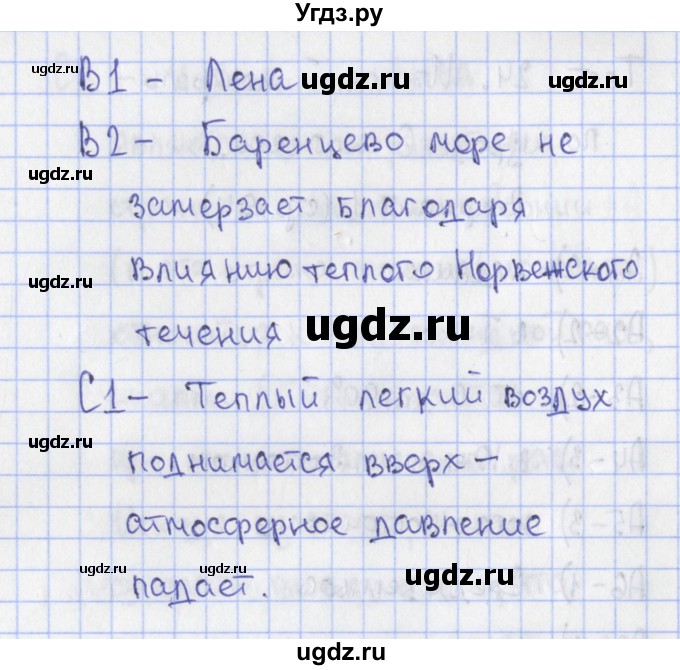 Угдз.ру
В1 – Лена
В2 – Баренцево море не
замерзает благодаря
влиянию теплого Норвежского
течения
С1 – Теплый легкий воздух
поднимается вверх –
атмосферное давление
падает.
ugdz.ru
ugdz.ru
ugdz.ru
ugdz.ru
ugdz.ru
ugdz.ru
ugdz.ru
ugdz.ru
ugdz.ru
ugdz.ru